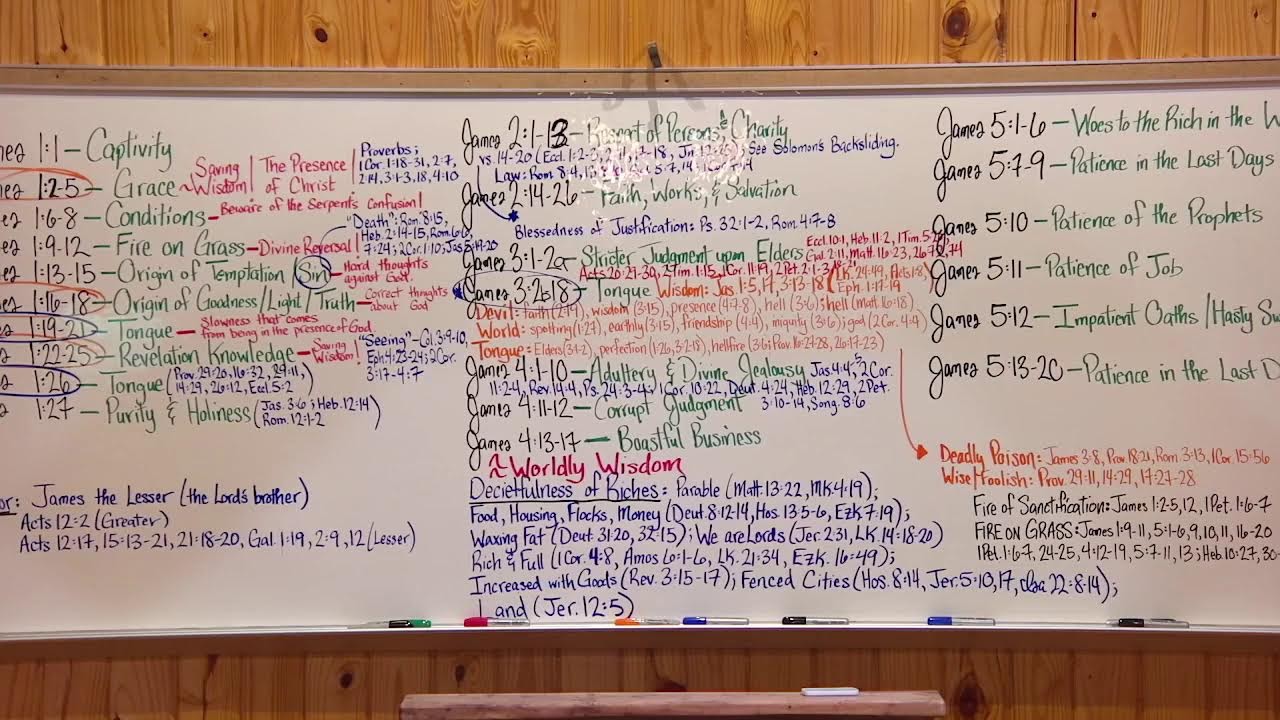 mes 1:1 - Captivity
mes 1:2-5 - Grace ~ Saving Wisdom! The Presence of Christ
Proverbs;
1Cor. 1:18-31, 2:7,
2:14, 3:1-3, 18, 4:10
mes 1:6-8 - Conditions - Beware of the Serpent's Confusion!
mes 1:9-12 - Fire on Grass - Divine Reversal!
"Death": Rom. 8:15,
Heb. 2:14-15, Rom. 6:6,
7:24; 2Cor. 1:10; Jas. 5:19-20
mes 1:13-15 - Origin of Temptation / Sin - Hard thoughts against God
mes 1:16-18 - Origin of Goodness/Light/Truth - Correct thoughts about God
1:19-21 - Tongue - Slowness that comes from being in the presence of God.
1:22-25 - Revelation Knowledge - Saving Wisdom!
"Seeing" - Col. 3:9-10,
Eph. 4:23-24; 2Cor.
3:17-4:7
1:26 - Tongue (Prov. 29:20, 16:32, 29:11,
14:29, 26:12, Eccl. 5:2)
1:27 - Purity & Holiness (Jas. 3:6; Heb. 12:14
Rom. 12:1-2)
or: James the Lesser (the Lord's brother)
Acts 12:2 (Greater)
Acts 12:17, 15:13-21, 21:18-20, Gal. 1:19, 2:9, 12 (Lesser)
James 2:1-13 - Respect of Persons & Charity
vs. 14-20 (Eccl. 1:2-3, See Solomon's Backsliding.
Law: Rom. 8:4,
James 2:14-26 - Faith, Works, & Salvation
Blessedness of Justification: Ps. 32:1-2, Rom. 4:7-8
James 3:1-2a - Stricter Judgment upon Elders
Eccl. 10:1, Heb. 11:2, 1Tim. 5:
Gal. 2:11, Matt. 16:23,
Acts 20:29-30, 2Tim. 1:15, 1Cor. 11:19, 2Pet. 2:1-3
James 3:2b-18 - Tongue Wisdom: Jas. 1:5, 17, 3:13-18 (Lk. 24:49, Acts 1:8)
Eph. 1:17-19
Devil: faith (2:19), wisdom (3:15), presence (4:7-8), hell (3:6); hell (Matt. 16:18)
World: spotting (1:27), earthly (3:15), friendship (4:4), iniquity (3:6); god (2 Cor. 4:4)
Tongue: Elders (3:1-2), perfection (1:26, 3:2,18), hellfire (3:6; Prov. 16:27-28, 26:17-23)
James 4:1-10 - Adultery & Divine Jealousy Jas 4:4-5, 2Cor.
11:2-4, Rev. 14:4, Ps. 24:3-4; 1Cor. 10:22, Deut. 4:24, Heb. 12:29, 2Pet.
3:10-14, Song. 8:6
James 4:11-12 - Corrupt Judgment
James 4:13-17 - Boastful Business
~ Worldly Wisdom
Decietfulness of Riches: Parable (Matt. 13:22, Mk. 4:19);
Food, Housing, Flocks, Money (Deut. 8:12-14, Hos. 13:5-6, Ezk 7:19);
Waxing Fat (Deut. 31:20, 32:15); We are Lords (Jer. 2:31, Lk. 14:18-20)
Rich & Full (1Cor. 4:8, Amos 6:1-6, Lk. 21:34, Ezk. 16:49);
Increased with Gods (Rev. 3:15-17); Fenced Cities (Hos. 8:14, Jer. 5:10, 17, Isa 22:8-14);
Land (Jer. 12:5)
James 5:1-6 - Woes to the Rich in the W
James 5:7-9 - Patience in the Last Days
James 5:10 - Patience of the Prophets
James 5:11 - Patience of Job
James 5:12 - Impatient Oaths / Hasty Sw
James 5:13-20 - Patience in the Last D
Deadly Poison: James 3:8, Prov. 18:21, Rom. 3:13, 1Cor. 15:56
Wise/Foolish: Prov. 29:11, 14:29, 17:27-28
Fire of Sanctification: James 1:2-5, 12, 1Pet. 1:6-7
FIRE ON GRASS: James 1:9-11, 5:1-6, 9, 10, 11, 16-20
1Pet. 1:6-7, 24-25, 4:12-19, 5:7-11, 13; Heb 10:27, 30